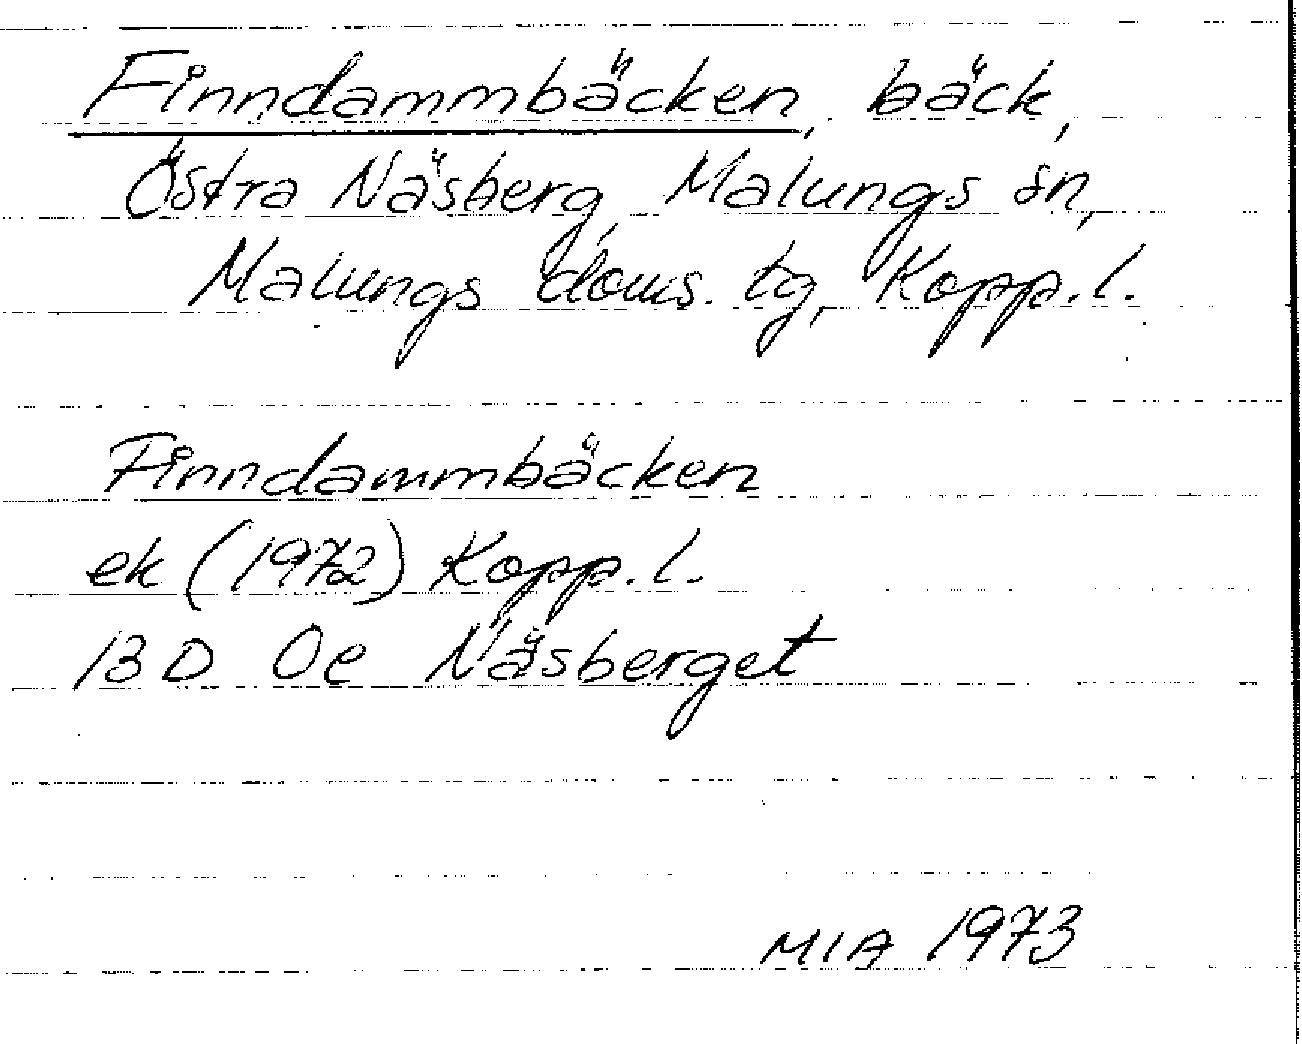 Finndammbäcken, bäck,
Östra Näsberg, Malungs sn,
Malungs doms. tg, Kopp. l.
Finndammbäcken
ek (1972) Kopp. l.
13 D Oe Näsberget
MIA 1973